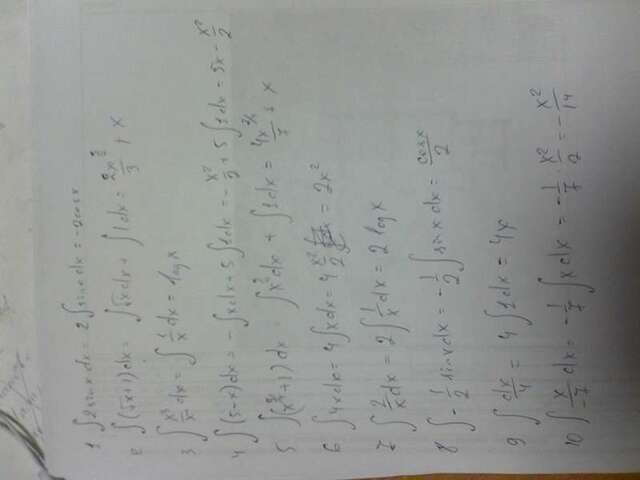 1 ∫2sinx dx = 2∫sinx dx = -2cosx
2 ∫(√x+1)dx = ∫√x dx + ∫1dx = 2x^(3/2)/3 + x
3 ∫ dx = ∫ 1/x dx = log x
4 ∫(5-x)dx = -∫xdx + 5∫1dx = -x²/2 + 5∫1dx = 5x - x²/2
5 ∫( +1)dx ∫ dx + ∫1dx = + x
6 ∫4xdx = 4∫xdx = 4 x²/2 = 2x²
7 ∫ 2/x dx = 2∫ 1/x dx = 2 log x
8 ∫ -1/2 sinx dx = -1/2 ∫sin x dx = cosx/2
9 ∫ dx/4 = 4∫1dx = 4x
10 ∫ x/-7 dx = -1/7 ∫x dx = -1/7 · x²/2 = -x²/14